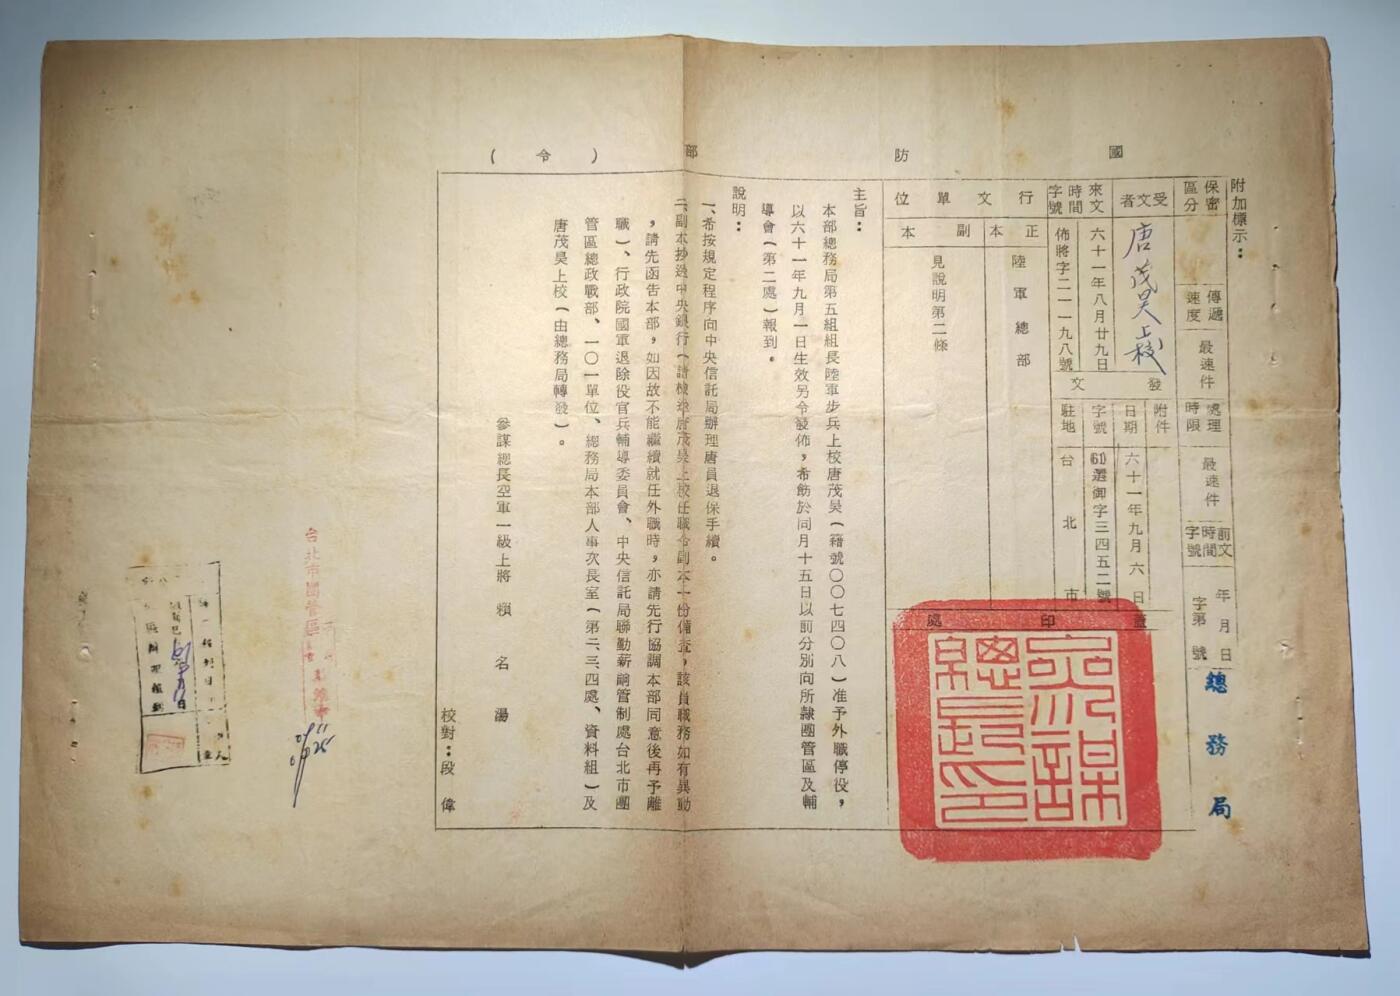 國防部（令）
附加標示：
保密區分
傳遞速度
最速件
處理時限
最速件
前文時間字號
年月日
字第 號
受文者
唐茂昊上校
來文時間字號
六十一年八月廿九日
佈將字二一一九八號
發文
附件
日期
六十一年九月六日
字號
60選御字三四五二號
駐地
台北市
行文單位
正本
陸軍總部
副本
見說明第二條
蓋印處
參謀總長印
總務局
主旨：
本部總務局第五組組長陸軍步兵上校唐茂昊（籍號〇〇七四〇八）准予外職停役，
以六十一年九月一日生效另令發佈，希飭於同月十五日以前分別向所隸團管區及輔
導會（第二處）報到。
說明：
一、希按規定程序向中央信託局辦理唐員退保手續。
二、副本抄送中央銀行（請檢送唐茂昊上校任職令副本一份備查，該員職務如有異動
，請先函告本部，如因故不能繼續就任外職時，亦請先行協調本部同意後再予離
職）、行政院國軍退除役官兵輔導委員會、中央信託局聯勤薪餉管制處台北市團
管區總政戰部、一〇一單位、總務局本部人事次長室（第二、三、四處、資料組）及
唐茂昊上校（由總務局轉發）。
參謀總長空軍一級上將 賴名湯
校對：段偉
台北市團管區